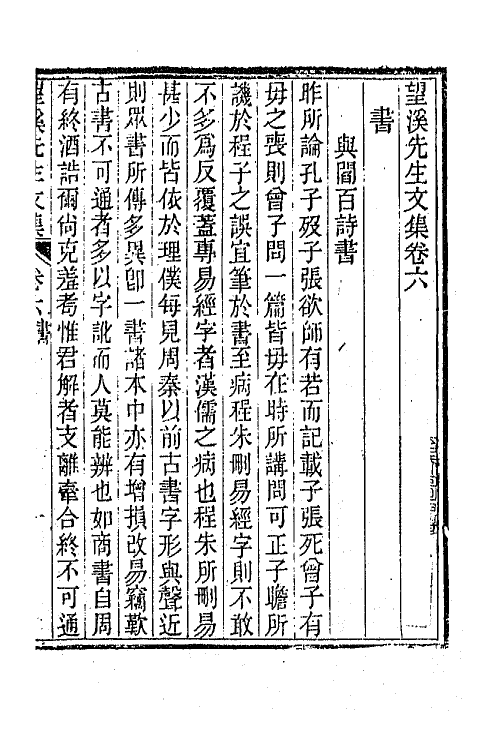 望溪先生文集卷六
書
與閻百詩書
昨所論孔子歿子張欲師有若而記載子張死曾子有
毋之喪則曾子問一篇皆毋在時所講問可正子瞻所
譏於程子之誤宜筆於書至病程朱刪易經字則不敢
不多爲反覆蓋專易經字者漢儒之病也程朱所刪易
甚少而皆依於理僕每見周秦以前古書字形與聲近
則眾書所傳多異卽一書諸本中亦有增損改易竊歎
古書不可通者多以字訛而人莫能辨也如商書自周
有終酒誥爾尙克羞耉惟君解者支離牽合終不可通
望溪先生文集 卷六 書 一